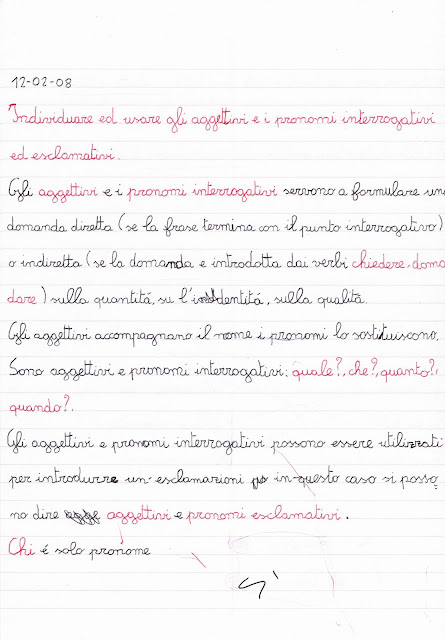 12-02-08
Individuare ed usare gli aggettivi e i pronomi interrogativi
ed esclamativi.
Gli aggettivi e i pronomi interrogativi servono a formulare una
domanda diretta (se la frase termina con il punto interrogativo)
o indiretta (se la domanda e introdotta dai verbi chiedere-doma
dare) sulla quantitá, su l'identitá, sulla qualitá.
Gli aggettivi accompagnano il nome i pronomi lo sostituiscono.
Sono aggettivi e pronomi interrogativi: quale?, che?, quanto?,
quando?.
Gli aggettivi e pronomi interrogativi possono essere utilizzati
per introdurre un-esclamazioni in-questo caso si posso
no dire aggettivi e pronomi esclamativi.
Chi é solo pronome